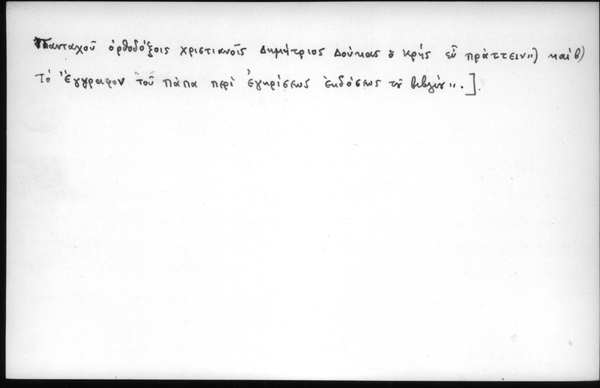 Πανταχοῦ ὀρθοδόξοις χριστιανοῖς Δημήτριος Δούκας ὁ Κρής εὖ πράττειν") καὶ β)
Τό "Ἔγγραφον τοῦ Πάπα περὶ ἐγκρίσεως ἐκδόσεως τοῦ βιβλίου".].